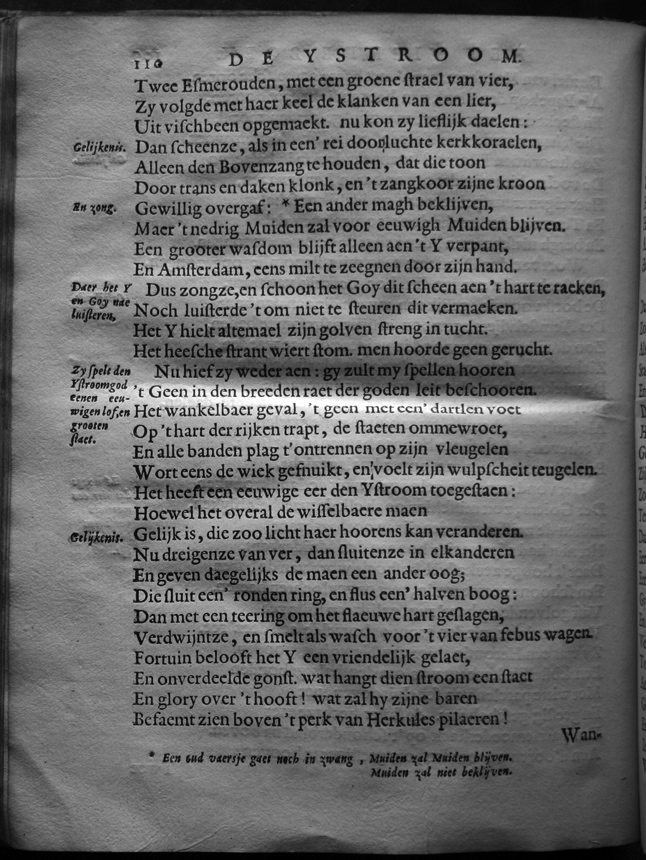 110 DE YSTROOM.
Twee Esmerouden, met een groene strael van vier,
Zy volgde met haer keel de klanken van een lier,
Uit vischbeen opgemaekt. nu kon zy lieflijk daelen:
Gelijkenis. Dan scheenze, als in een' rei doorluchte kerkkoraelen,
Alleen den Bovenzang te houden, dat die toon
Door trans en daken klonk, en 't zangkoor zijne kroon
En zong. Gewillig overgaf: * Een ander magh beklijven,
Maer 't nedrig Muiden zal voor eeuwigh Muiden blijven.
Een grooter wasdom blijft alleen aen 't Y verpant,
En Amsterdam, eens milt te zeegnen door zijn hand.
Daer het Y en Goy nae luisteren,
Dus zongze, en schoon het Goy dit scheen aen 't hart te raeken,
Noch luisterde 't om niet te steuren dit vermaeken.
Het Y hielt altemael zijn golven streng in tucht.
Het heesche strant wiert stom. men hoorde geen gerucht.
Zy spelt den Ystroomgod eenen eeuwigen lof, en grooten staet.
Nu hief zy weder aen: gy zult my spellen hooren
't Geen in den breeden raet der goden leit beschooren.
Het wankelbaer geval, 't geen met een' dartlen voet
Op 't hart der rijken trapt, de staeten ommewroet,
En alle banden plag t'ontrennen op zijn vleugelen
Wort eens de wiek gesnuikt, en voelt zijn wulpscheit teugelen.
Het heeft een eeuwige eer den Ystroom toegestaen:
Hoewel het overal de wisselbaere maen
Gelijkenis. Gelijk is, die zoo licht haer hoorens kan veranderen.
Nu dreigenze van ver, dan sluitenze in elkanderen
En geven daegelijks de maen een ander oog;
Die sluit een' ronden ring, en flus een' halven boog:
Dan met een teering om het flaeuwe hart geslagen,
Verdwijntze, en smelt als wasch voor 't vier van febus wagen.
Fortuin belooft het Y een vriendelijk gelaet,
En onverdeelde gonst. wat hangt dien stroom een staet
En glory over 't hooft! wat zal hy zijne baren
Befaemt zien boven 't perk van Herkules pilaeren!
Wan-
* Een oud vaersje gaet noch in zwang, Muiden zal Muiden blijven.
Muiden zal niet beklijven.